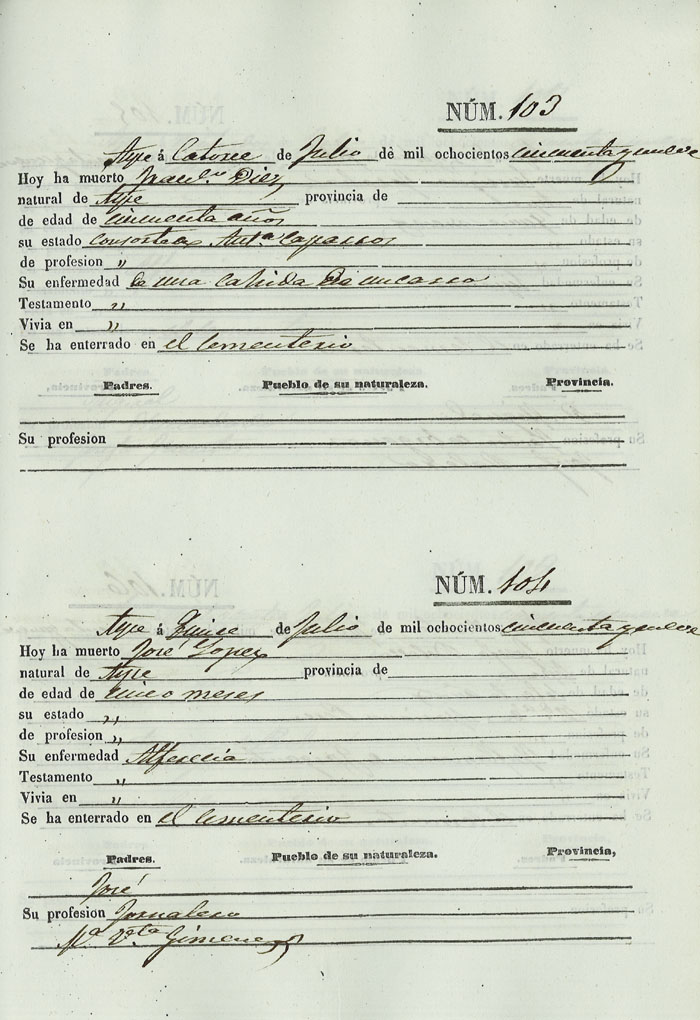 NÚM. 103
Aspe á Catorce de Julio de mil ochocientos cincuenta y nueve
Hoy ha muerto Fran.ca Diez
natural de Aspe provincia de
de edad de cincuenta años
su estado consorte de Ant.o
de profesion "
Su enfermedad de una cahida de
Testamento "
Vivia en "
Se ha enterrado en el Cementerio
Padres. Pueblo de su naturaleza. Provincia.
Su profesion
NÚM. 104
Aspe á Quince de Julio de mil ochocientos cincuenta y nueve
Hoy ha muerto José Lopez
natural de Aspe provincia de
de edad de cinco meses
su estado "
de profesion "
Su enfermedad Alferecia
Testamento "
Vivia en "
Se ha enterrado en el Cementerio
Padres. Pueblo de su naturaleza. Provincia,
José
Su profesion Jornalero
M.a V.ta Gimenez